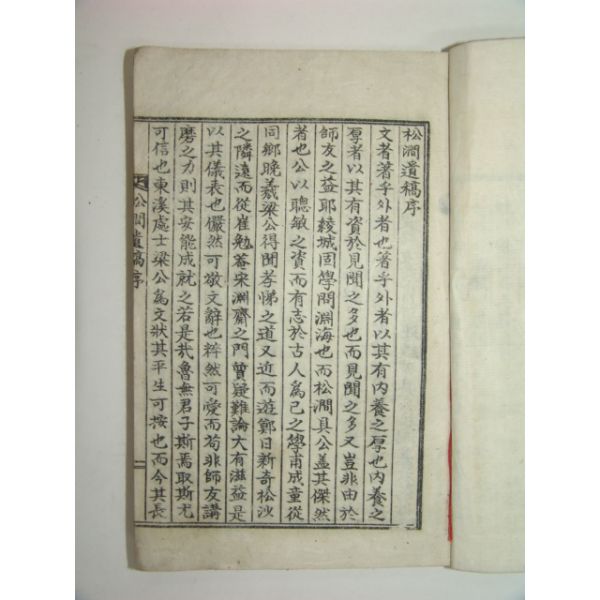 松澗遺稿序
文者著乎外者也著乎外者以其有內養之厚也內養之
厚者以其有資於見聞之多也而見聞之多又豈非由於
師友之益耶綾城固學問淵海也而松澗具公盖其傑然
者也公以聰敏之資而有志於古人爲己之學甫成童從
同鄉晚羲梁公得聞孝悌之道又近而遊鄭日新奇松沙
之隣遠而從崔勉菴宋淵齋之門質疑難論大有滋益是
以其儀表也儼然可敬文辭也粹然可愛而苟非師友講
磨之力則其安能成就之若是哉魯無君子斯焉取斯尤
可信也東溪處士梁公爲文狀其平生可按也而今其長
松澗遺稿序
一